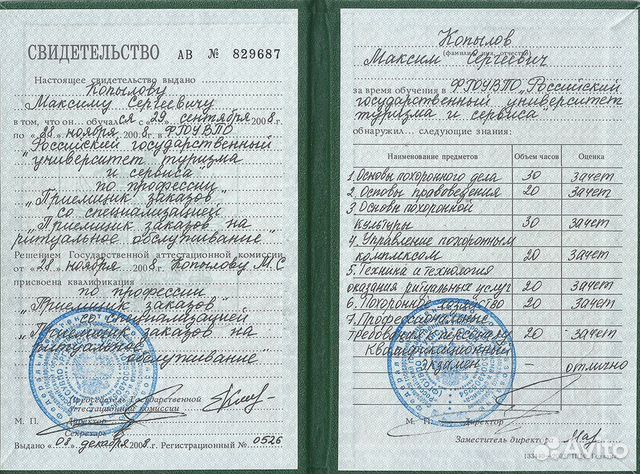 СВИДЕТЕЛЬСТВО АВ № 829687
Настоящее свидетельство выдано
Копылову
Максиму Сергеевичу
в том, что он обучался с 29 сентября 2008 г.
по «28» ноября 2008 в ФГОУВПО
"Российский государственный
университет туризма
и сервиса"
по профессии
"Приемщик заказов"
со специализацией
"Приемщик заказов на
ритуальное обслуживание"
Решением Государственной аттестационной комиссии
от «28» ноября 2008 Копылову М.С
присвоена квалификация
по профессии
"Приемщик заказов"
со специализацией
"Приемщик заказов на
ритуальное
обслуживание"
Председатель Государственной
аттестационной комиссии
М. П. Директор
Секретарь
Выдано «08» декабря 2008 г. Регистрационный № 0526
Копылов
(фамилия, имя, отчество)
Максим Сергеевич
за время обучения в ФГОУВПО "Российский
государственный университет
туризма и сервиса
обнаружил следующие знания:
Наименование предметов Объем часов Оценка
1. Основы похоронного дела 30 зачет
2. Основы правоведения 20 зачет
3 Основы похоронной
культуры 30 зачет
4. Управление похоронным
комплексом 20 зачет
5. Техника и технология
оказания ритуальных услуг 20 зачет
6. Похоронное 20 зачет
7. Профессиональные
требования к персоналу 20 зачет
Квалификационный
экзамен — отлично
М. П. Директор
Заместитель директора
Avito